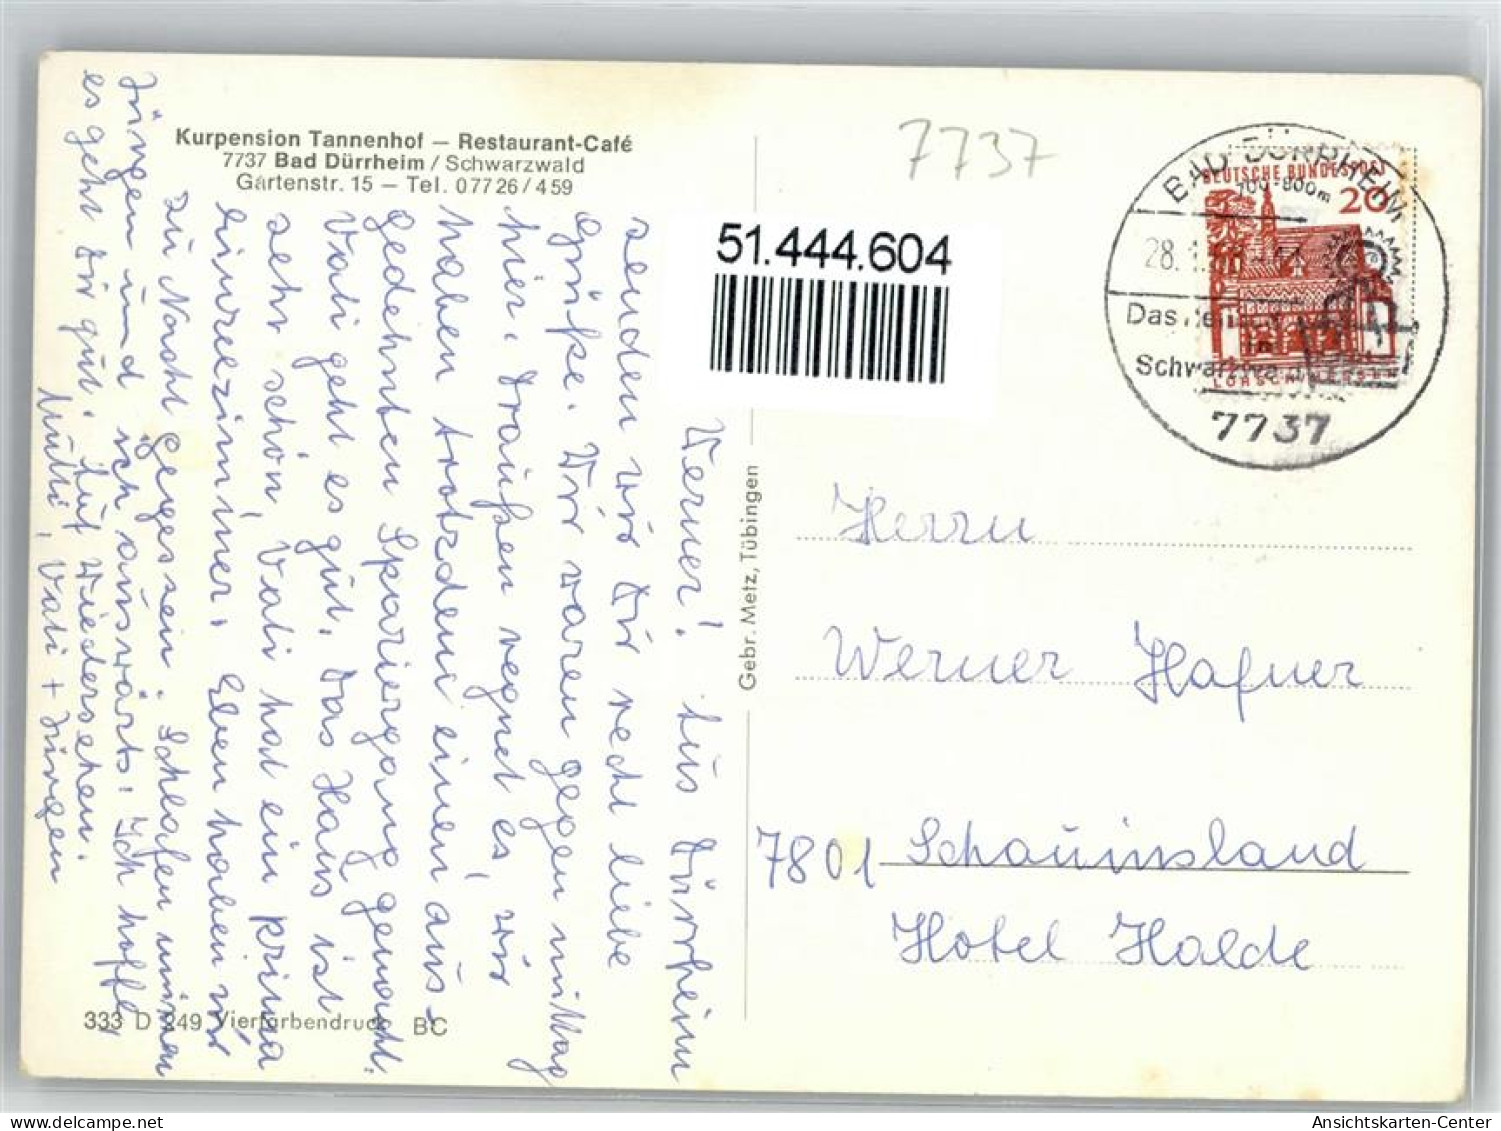 Kurpension Tannenhof — Restaurant-Café
7737 Bad Dürrheim / Schwarzwald
Gartenstr. 15 — Tel. 07726/459
Werner! Aus Dürrheim
senden wir Dir recht liebe
Grüße. Wir waren gegen mittag
hier. Draußen regnet es, wir
haben trotzdem einen aus-
gedehnten Spaziergang gemacht.
Vati geht es gut. Das Haus ist
sehr schön, Vati hat ein prima
Einzelzimmer. Eben haben wir
zu Nacht gegessen. Schlafen müssen
Jürgen und ich auswärts. Ich hoffe
es geht Dir gut. Auf Wiedersehen.
Mutti, Vati + Jürgen
333 D 249 Vierfarbendruck BC
Gebr. Metz, Tübingen
7737
51.444.604
BAD DÜRRHEIM
700-800m
28.
Das
in
Schwarzwald
7737
DEUTSCHE BUNDESPOST
20
LORSCH/HESSEN
Herrn
Werner Hafner
7801 Schauinsland
Hotel Halde
Ansichtskarten-Center